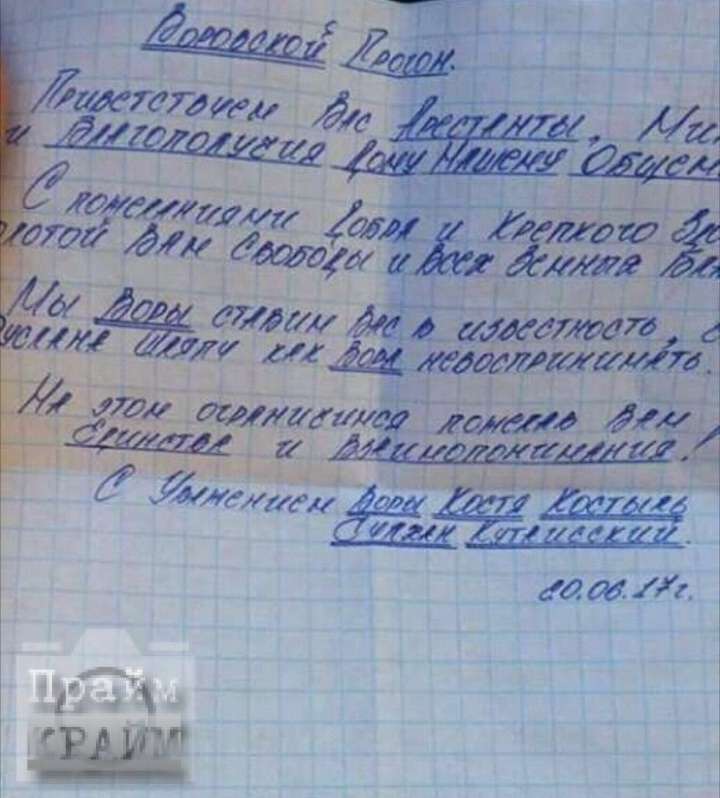 Воровской Прогон.
Приветствуем Вас Арестанты, Ми
и Благополучия Дому Нашему Общем
С пожеланиями Добра и Крепкого Здо
лотой Вам Свободы и Всех Земных Бла
Мы Воры ставим Вас в известность, с
услана Шляпу как Вора невоспринимать.
На этом ограничимся пожелав Вам
Единства и Взаимопонимания!
С Уважением Воры Костя Костыль
Сулхан Кутаисский.
20.06.17г.
Прайм
КРАЙМ